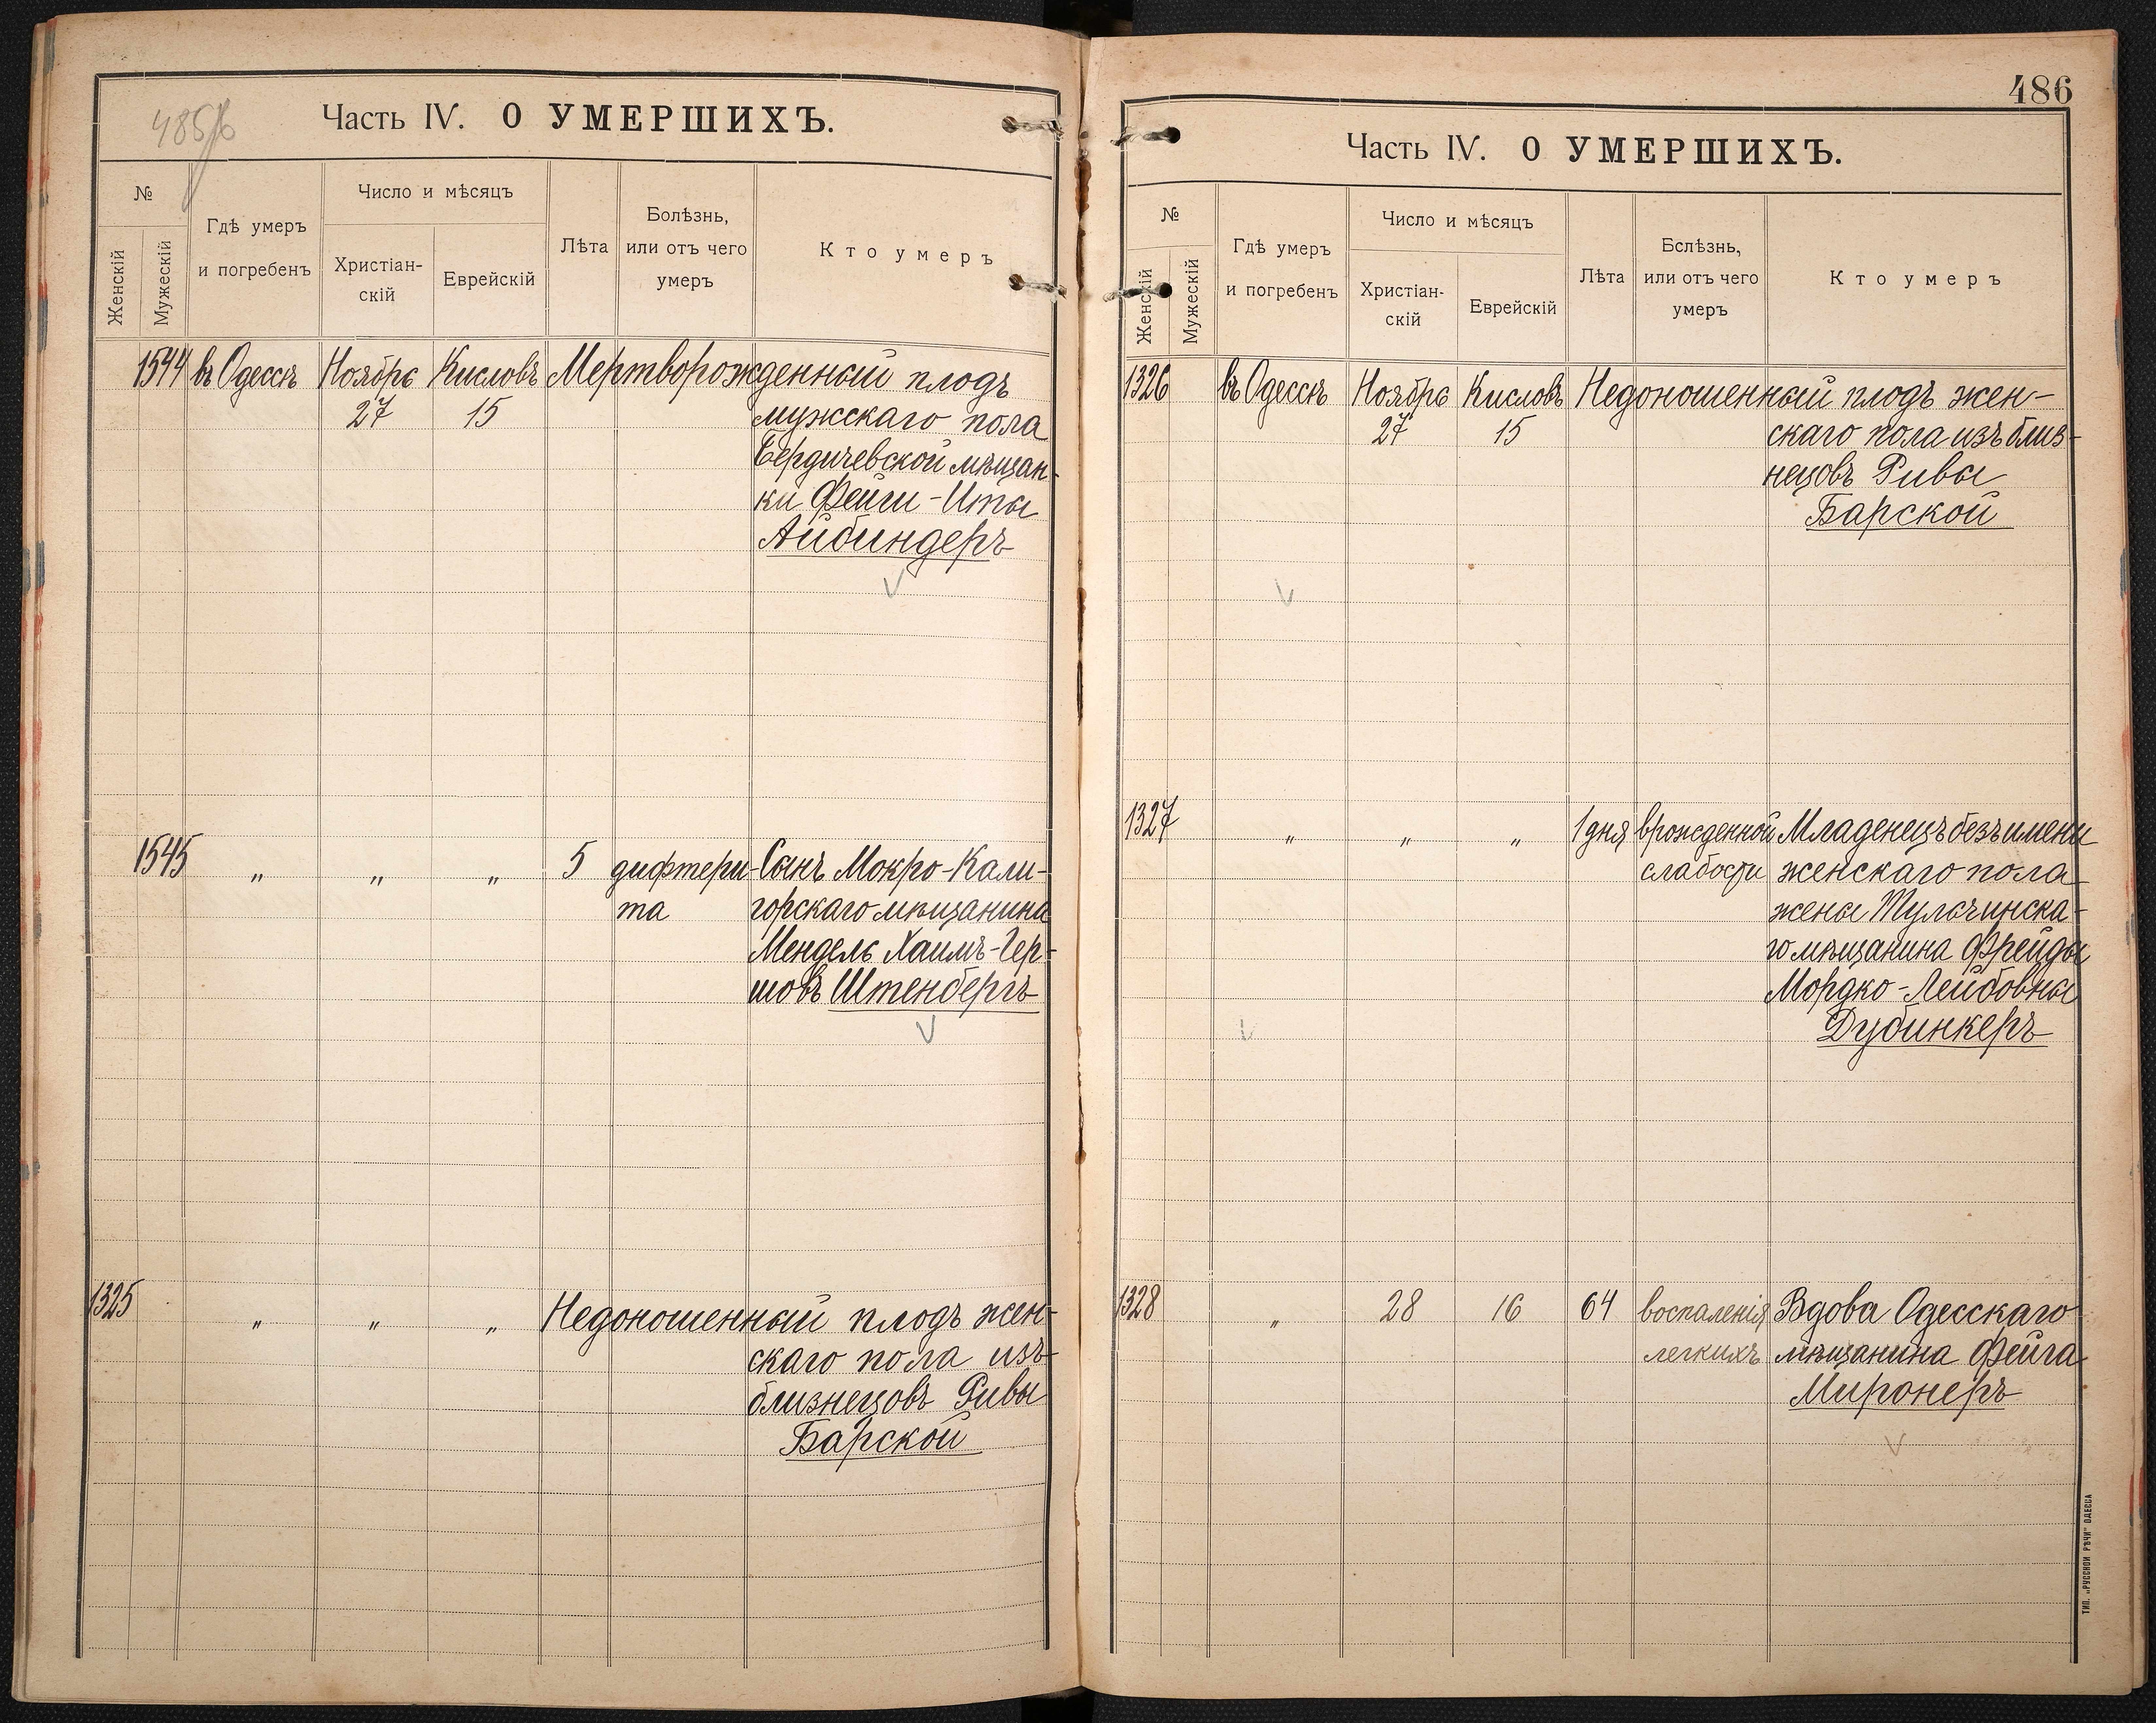 485/6
Часть IV. О УМЕРШИХЪ.
№
Женскій
Мужескій
Гдѣ умеръ
и погребенъ
Число и мѣсяцъ
Христіан-
скій
Еврейскій
Лѣта
Болѣзнь,
или отъ чего
умеръ
Кто умеръ
1544 въ Одессѣ Ноября Кисловъ Мертворожденный плодъ
27 15 мужскаго пола
Бердичевской мѣщан-
ки Фейги-Иты
Айбиндеръ
1545 „ „ „ 5 дифтери- Сынъ Мокро-Кали-
та горскаго мѣщанина
Мендель Хаимъ-Гер-
шовъ Штенбергъ
1325 „ „ „ Недоношенный плодъ жен-
скаго пола изъ
близнецовъ Ривы
Барской
486
Часть IV. О УМЕРШИХЪ.
№
Женскій
Мужескій
Гдѣ умеръ
и погребенъ
Число и мѣсяцъ
Христіан-
скій
Еврейскій
Лѣта
Бслѣзнь,
или отъ чего
умеръ
Кто умеръ
1326 въ Одессѣ Ноября Кисловъ Недоношенный плодъ жен-
27 15 скаго пола изъ близ-
нецовъ Ривы
Барской
1327 „ „ „ 1 дня врожденной Младенецъ безъ имени
слабости женскаго пола
жены Тульчинска-
го мѣщанина Фрейды
Мордко-Лейбовны
Дубинкеръ
1328 „ 28 16 64 воспаленія Вдова Одесскаго
легкихъ мѣщанина Фейга
Миронеръ
ТИП. „РУССКОЙ РѢЧИ“ ОДЕССА